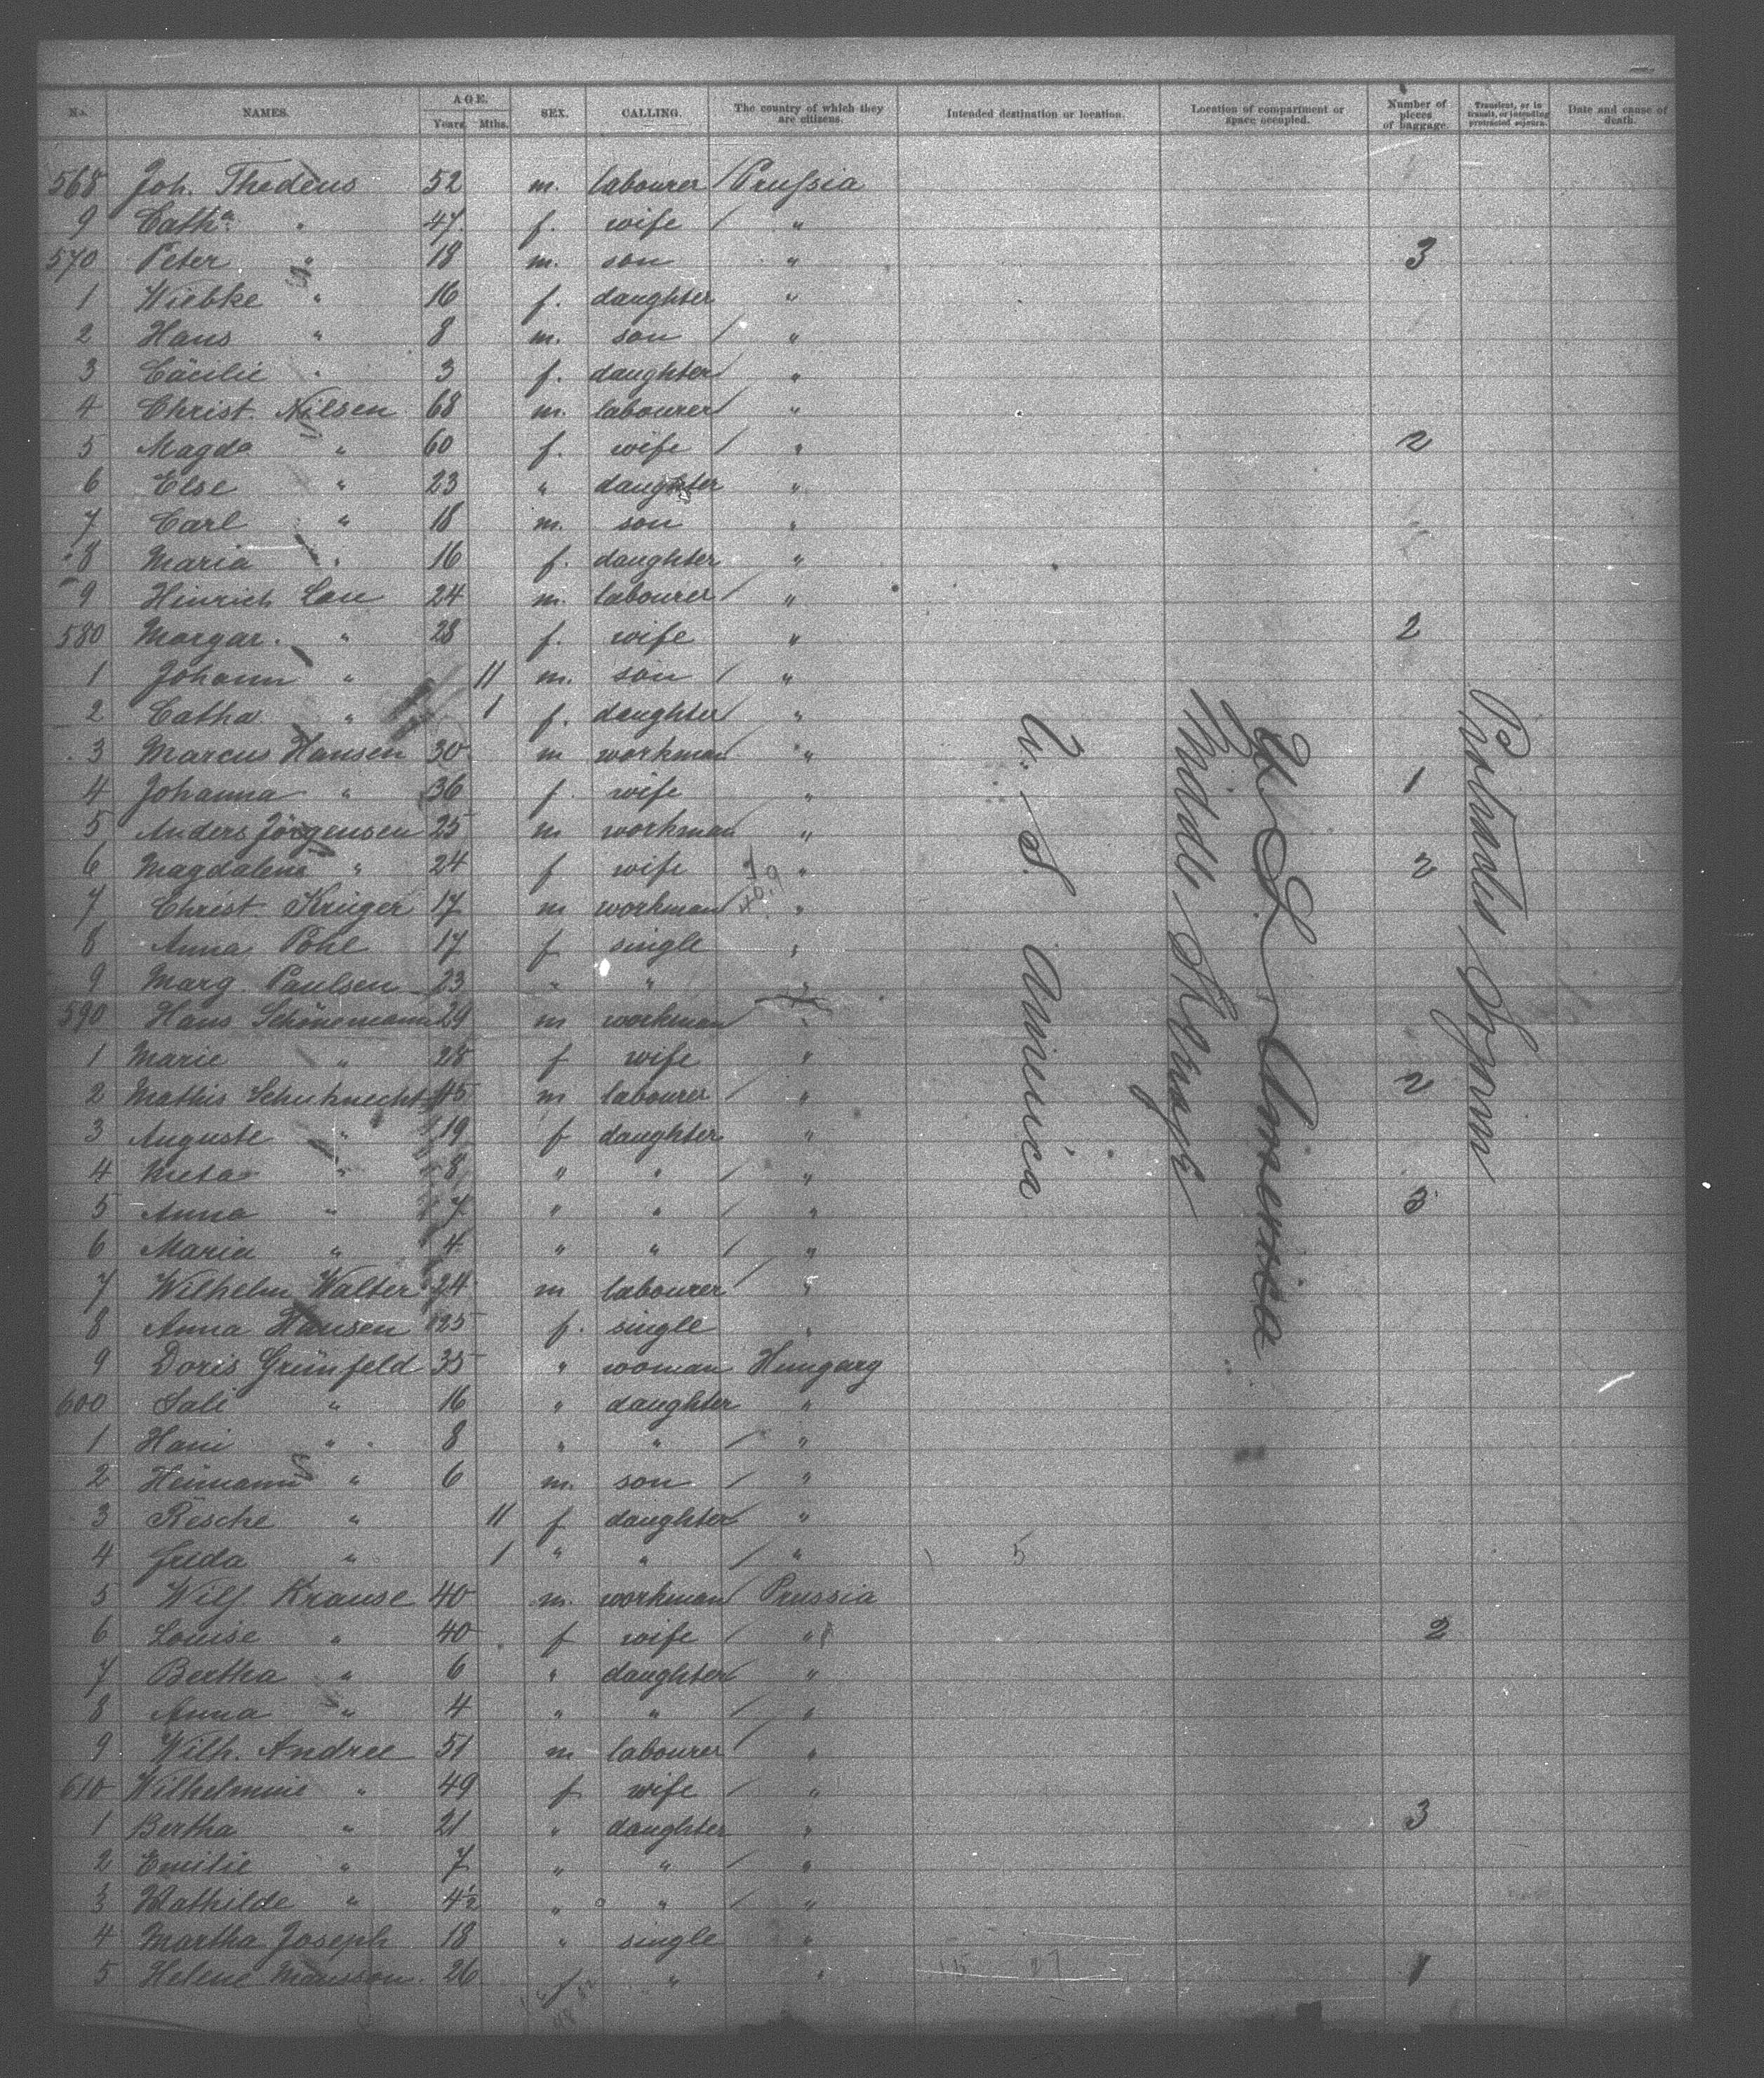 No. NAMES. AGE. Years Mths. SEX. CALLING. The country of which they are citizens. Intended destination or location. Location of compartment or space occupied. Number of pieces of baggage. Transient, or in transit, or intending protracted sojourn. Date and cause of death.
568 Joh. Thedens 52 m. labourer / Prussia
9 Cath.ª " 47. f. wife / "
570 Peter " 18 m. son " 3
1 Wiebke " 16 f. daughter "
2 Hans " 8 m. son / "
3 Cäcilie " 3 f. daughter / "
4 Christ. Nilsen 68 m. labourer / "
5 Magda " 60 f. wife / " 2
6 Else " 23 " daughter "
7 Carl " 18 m. son "
8 Maria " 16 f. daughter "
9 Hinrich Lau 24 m. labourer / "
580 Margar. " 28 f. wife " 2
1 Johann " 11 m. son / "
2 Catha " 1 f. daughter / "
3 Marcus Hansen 30 m workman "
4 Johanna " 36 f. wife " 1
5 Anders Jörgensen 25 m workman "
6 Magdalene " 24 f wife " 2
7 Christ. Krüger 17 m workman "
8 Anna Pohl 17 f single "
9 Marg. Paulsen 23 " " "
590 Hans Schönemann 29 m workman "
1 Marie " 28 f wife "
2 Mathis Schuknecht 45 m labourer / " 2
3 Auguste " 19 f daughter "
4 Meta " 8 " " / "
5 Anna " 7 " " / " 3
6 Maria " 4 " " / "
7 Wilhelm Walter 24 m labourer / "
8 Anna Hansen 25 f. single "
9 Doris Grünfeld 35 " woman Hungary
600 Sali " 16 " daughter "
1 Hani " 8 " " / "
2 Heimann " 6 m. son / "
3 Resche " 11 f daughter / "
4 Frida " 1 " " / "
5 Wilh Krause 40 m. workman / Prussia
6 Louise " 40 f wife / " 2
7 Bertha " 6 " daughter / "
8 Anna " 4 " " / "
9 Wilh. Andree 51 m labourer / "
610 Wilhelmine " 49 f wife / "
1 Bertha " 21 " daughter " 3
2 Emilie " 7 " " / "
3 Mathilde " 4½ " " / "
4 Martha Joseph 18 " single "
5 Helene Mansson 26 f " " 1
U. S. America
Middle Steerage
U S America